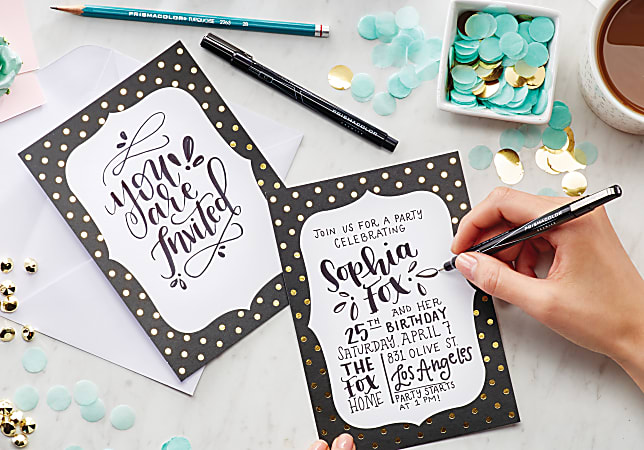 PRISMACOLOR TURQUOISE 2263 2B
PRISMACOLOR
you
are
Invited!
JOIN US FOR A PARTY
CELEBRATING
Sophia
Fox
AND HER
25TH BIRTHDAY
SATURDAY, APRIL 7
THE
Fox
HOME
831 OLIVE ST.
Los Angeles
PARTY STARTS
AT 1 PM!
PRISMACOLOR
PREMIER